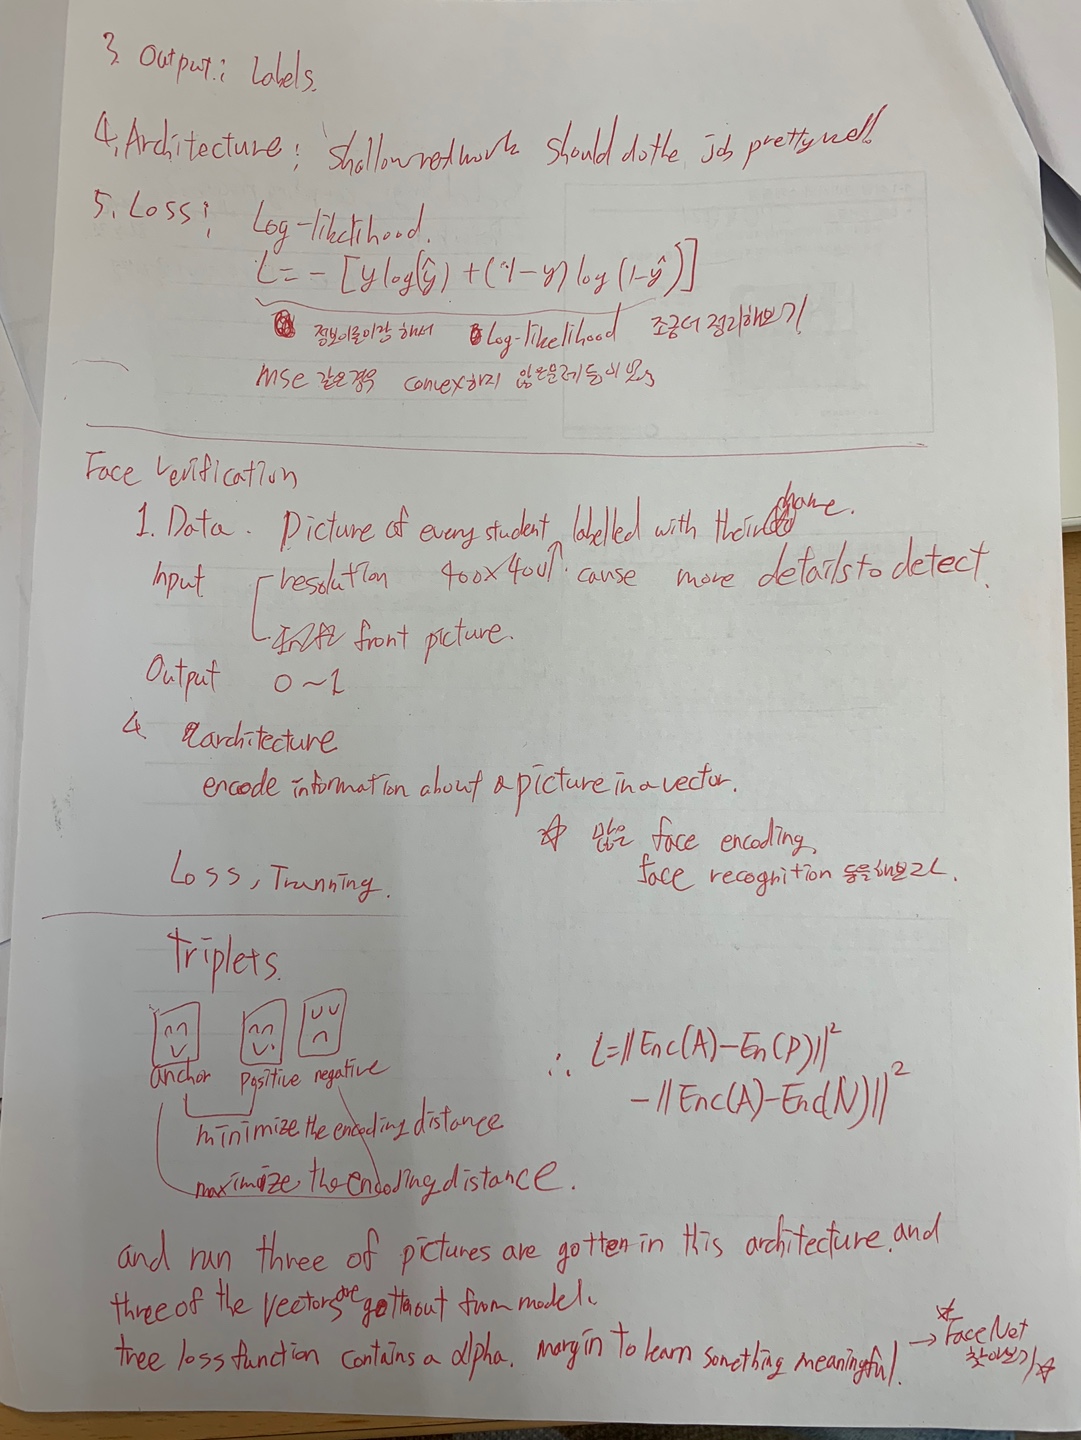 3. Output : Labels.
4. Architecture : Shallow network should do the job pretty well!
5. Loss : Log-likelihood.
L = - [y log(ŷ) + (1-y) log (1-ŷ)]
정보이론이랑 해서 Log-likelihood 조금더 정리해보기
MSE 같은경우 convex하지 않은문제 등이 있음
Face Verification
1. Data. Picture of every student labelled with their name.
Input resolution 400x400 cause more details to detect.
front picture.
Output 0 ~ 1
4. architecture
encode information about a picture in a vector.
☆ 많은 face encoding,
face recognition 등을 해보고나.
Loss, Trunning.
Triplets.
anchor positive negative
minimize the encoding distance
maximize the encoding distance.
∴ L=||Enc(A)-En(P)||²
-||Enc(A)-Enc(N)||²
and run three of pictures are gotten in this architecture, and
three of the vectors are gotten out from model.
tree loss function contains a alpha. margin to learn something meaningful. → ☆ FaceNet
찾아보기☆